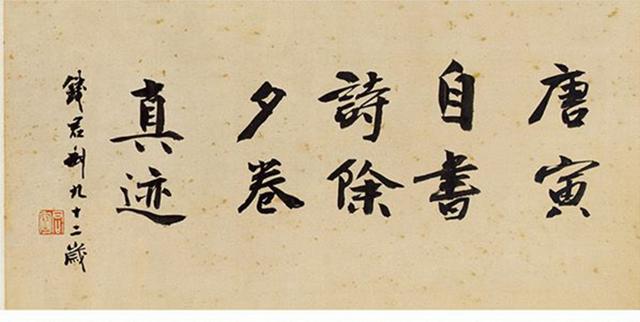 唐寅
自書
詩除
夕卷
真迹
錢君匋九十二歲